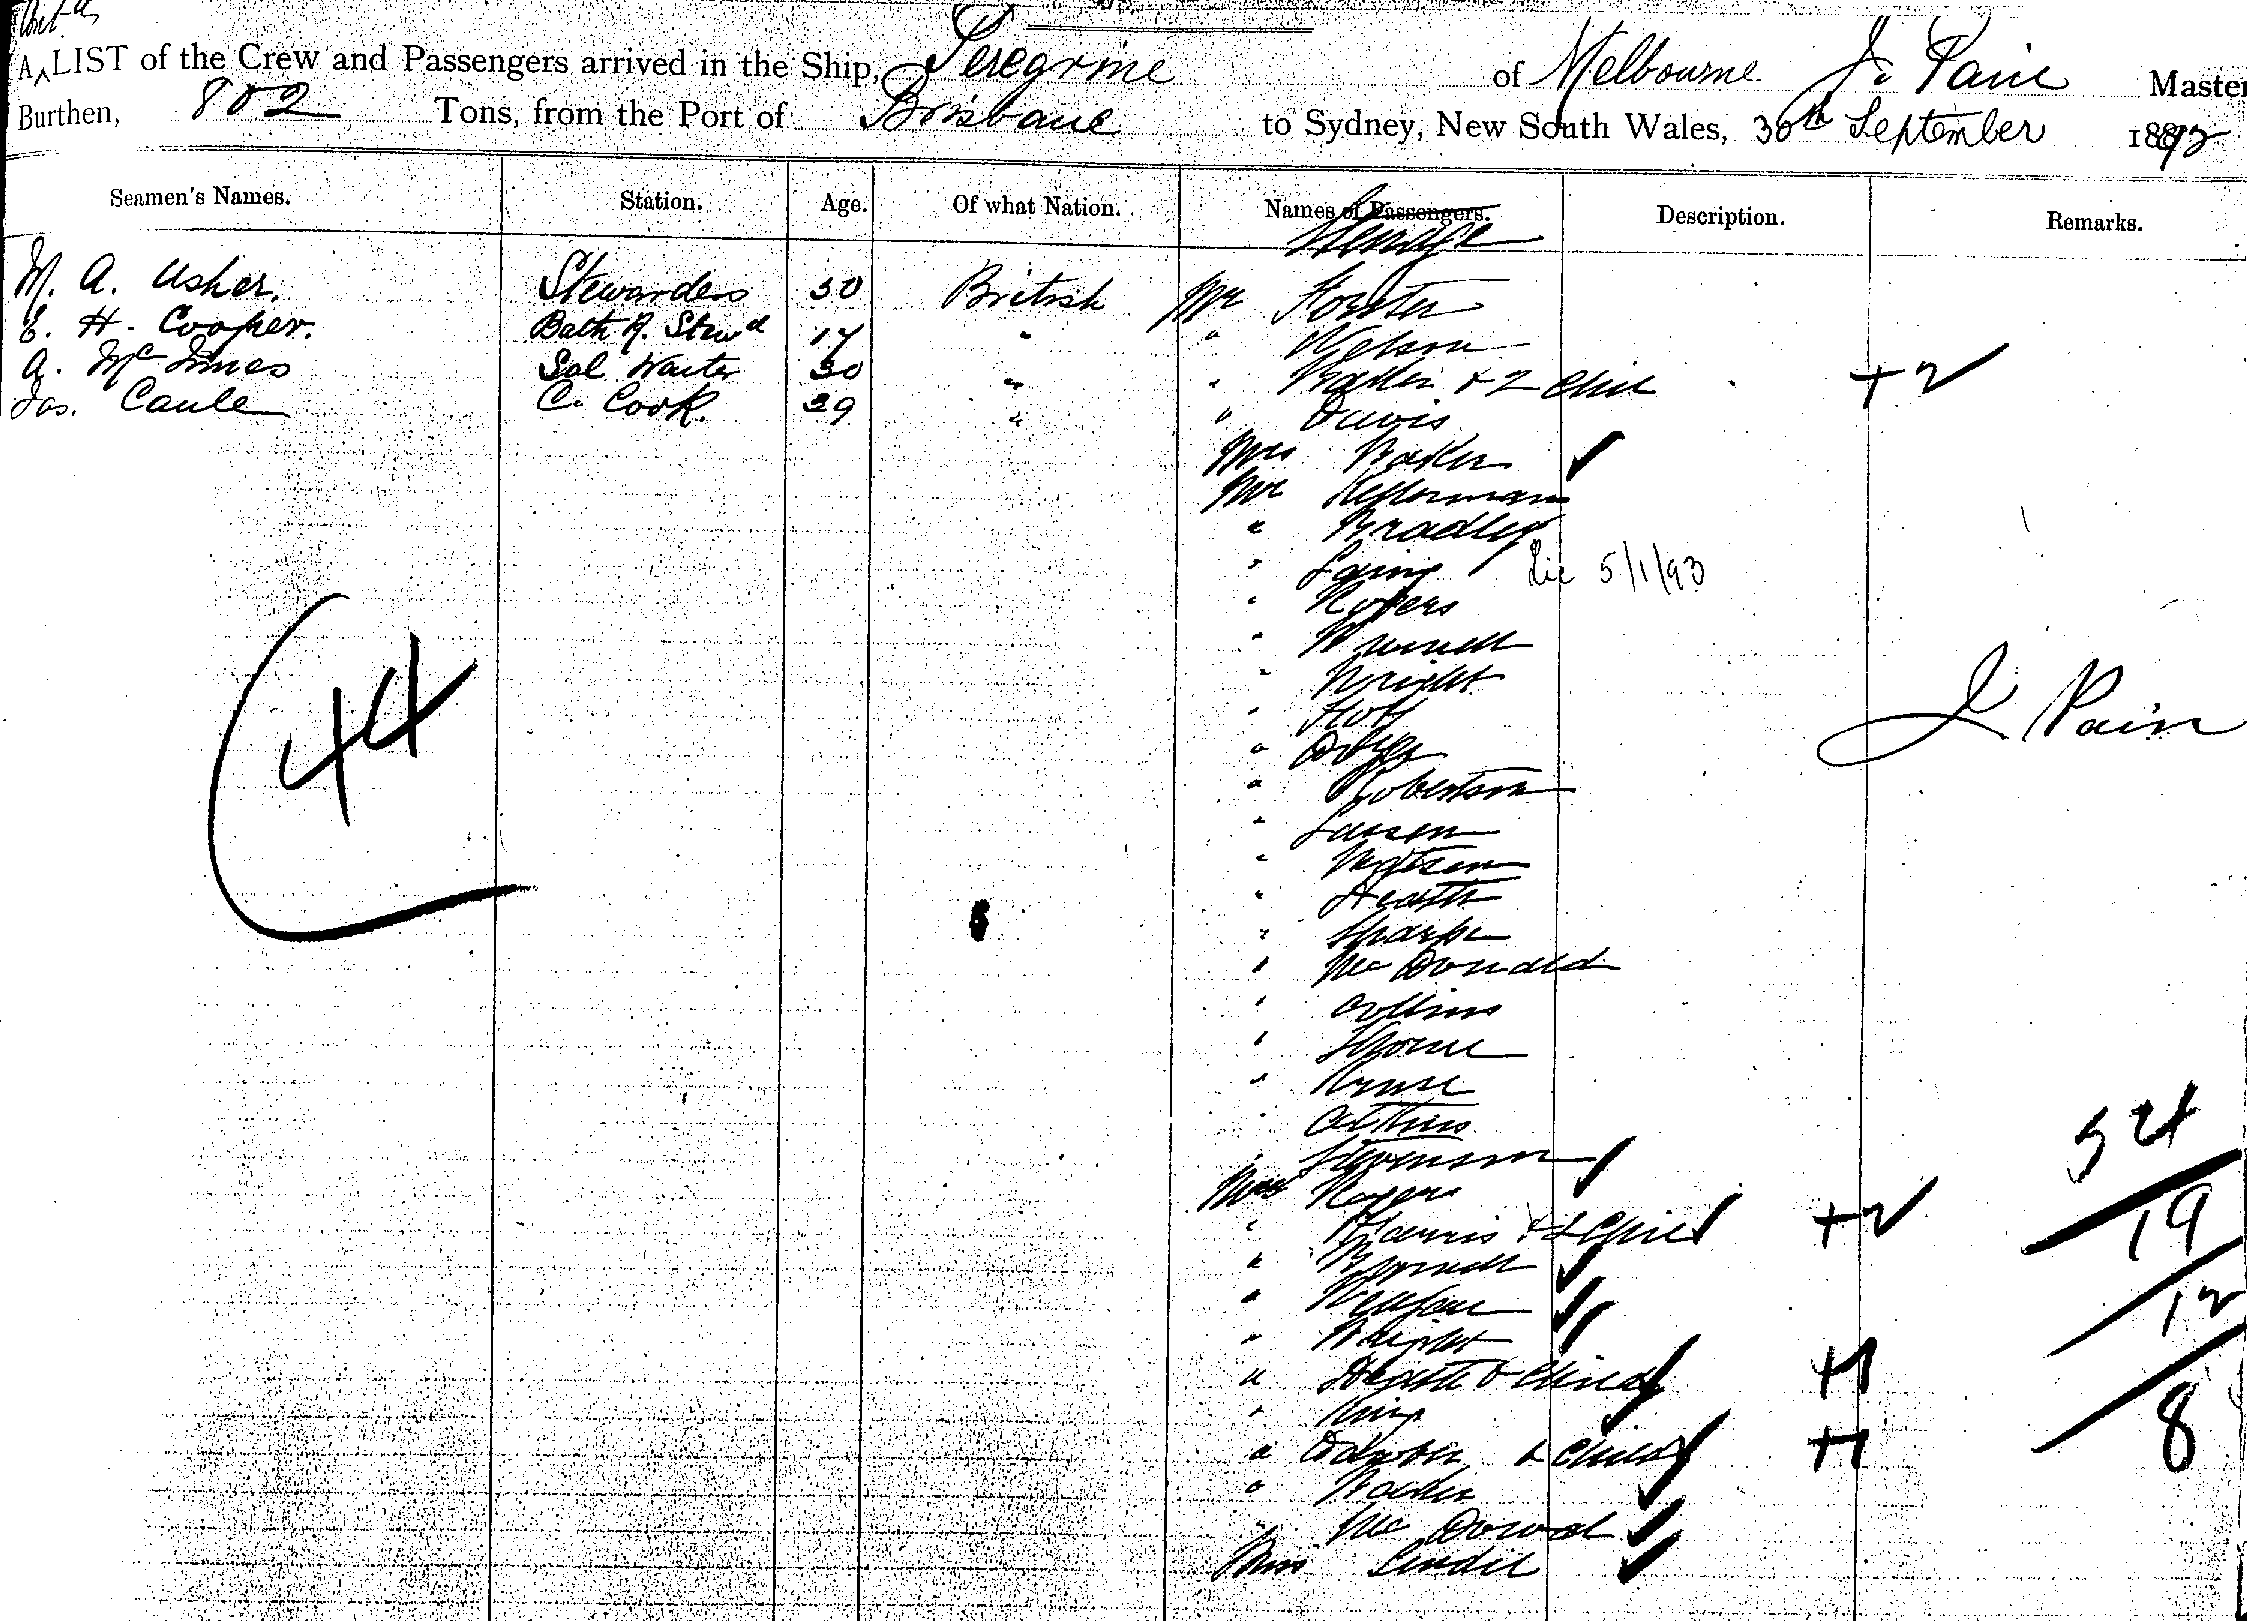 A LIST of the Crew and Passengers arrived in the Ship, Peregrine of Melbourne J. Pain Master
Burthen, 802 Tons, from the Port of Brisbane to Sydney, New South Wales, 30th September 1892
Seamen's Names. Station. Age. Of what Nation. Names of Passengers. Description. Remarks.
Steerage
M. A. Usher. Stewardess 30 British Mr Forster
E. H. Cooper. Bath R. Stewd 17 " " Nelson
A. McInnes Sal Waiter 30 " " & 2 Chil +2
Jas. Caule C. Cook. 39 " " Davis
Mrs Baker
Mr Kellermann
" Bradley
" Laing 5/1/93
" Rogers
"
" Wright
" Holt
"
" Robertson
" Larsen
" Watson
" Heath
" Sharpe
" McDonald
" Collins
" Thorne
"
Stevenson
Mrs Rogers
" Harris & 2 Child +2
"
"
" Wright
" Heath & Child +1
" King
" & Child +1
"
" McDowal
Miss
44
J Pain
54
19
12
8